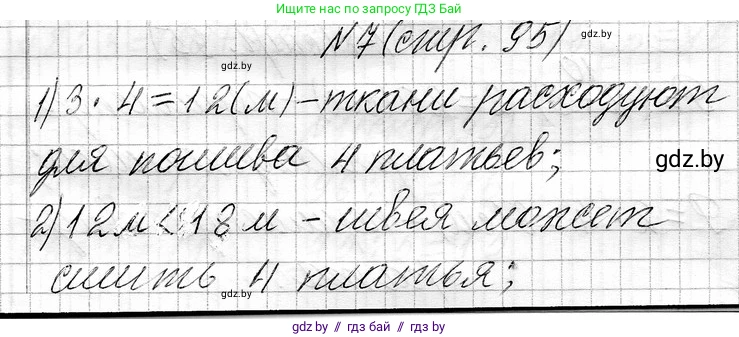 Ищите нас по запросу ГДЗ Бай
N 7 (стр. 95)
gdz.by
gdz.by
1) 3 · 4 = 12 (м) – ткани расходуют
для пошива 4 платьев;
gdz.by
2) 12 м < 18 м – швея может
сшить 4 платья;
gdz.by
gdz.by // гдз бай // gdz.by